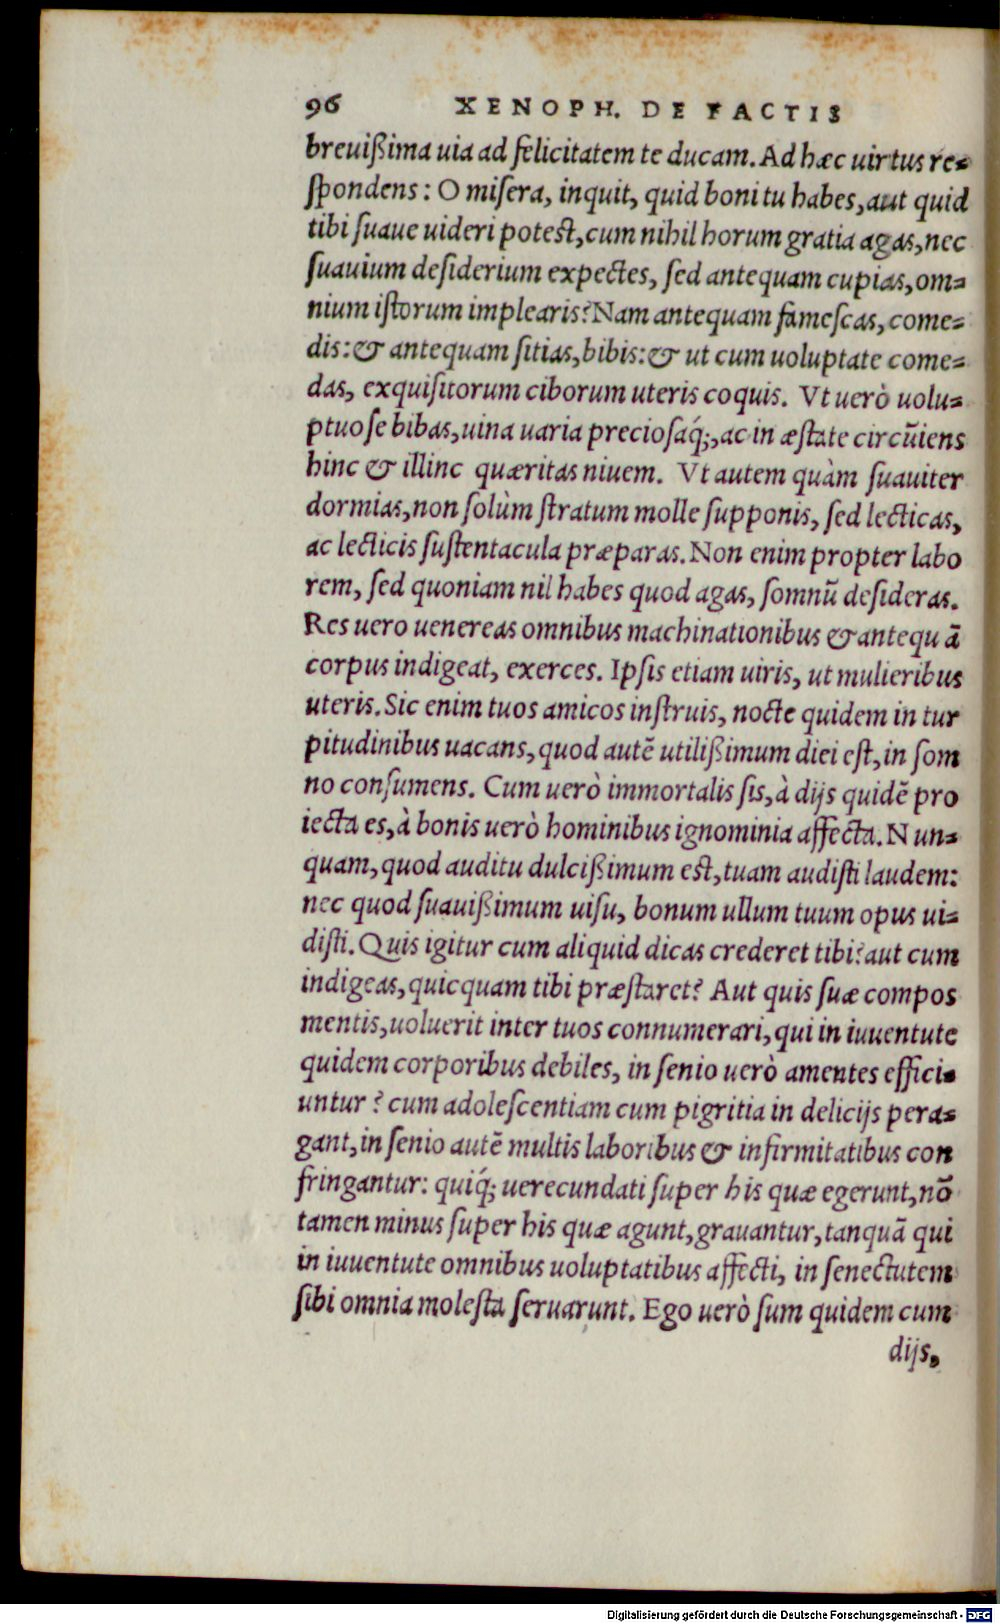 96 XENOPH. DE FACTIS
breuißima uia ad felicitatem te ducam. Ad hæc uirtus re=
ſpondens: O miſera, inquit, quid boni tu habes, aut quid
tibi ſuaue uideri poteſt, cum nihil horum gratia agas, nec
ſuauium deſiderium expectes, ſed antequam cupias, om=
nium iſtorum implearis? Nam antequam fameſcas, come=
dis: & antequam ſitias, bibis: & ut cum uoluptate come=
das, exquiſitorum ciborum uteris coquis. Vt uerò uolu=
ptuoſe bibas, uina uaria precioſaq́;, ac in æſtate circũiens
hinc & illinc quæritas niuem. Vt autem quàm ſuauiter
dormias, non ſolùm ſtratum molle ſupponis, ſed lecticas,
ac lecticis ſuſtentacula præparas. Non enim propter labo
rem, ſed quoniam nil habes quod agas, ſomnũ deſideras.
Res uero uenereas omnibus machinationibus & antequã
corpus indigeat, exerces. Ipſis etiam uiris, ut mulieribus
uteris. Sic enim tuos amicos inſtruis, nocte quidem in tur
pitudinibus uacans, quod autẽ utilißimum diei eſt, in ſom
no conſumens. Cum uerò immortalis ſis, à dijs quidẽ pro
iecta es, à bonis uerò hominibus ignominia affecta. Nun=
quam, quod auditu dulcißimum eſt, tuam audiſti laudem:
nec quod ſuauißimum uiſu, bonum ullum tuum opus ui=
diſti. Quis igitur cum aliquid dicas crederet tibi? aut cum
indigeas, quicquam tibi præſtaret? Aut quis ſuæ compos
mentis, uoluerit inter tuos connumerari, qui in iuuentute
quidem corporibus debiles, in ſenio uerò amentes effici=
untur? cum adoleſcentiam cum pigritia in delicijs pera=
gant, in ſenio autẽ multis laboribus & infirmitatibus con
fringantur: quiq́; uerecundati ſuper his quæ egerunt, nõ
tamen minus ſuper his quæ agunt, grauantur, tanquã qui
in iuuentute omnibus uoluptatibus affecti, in ſenectutem
ſibi omnia moleſta ſeruarunt. Ego uerò ſum quidem cum
dijs,
Digitalisierung gefördert durch die Deutsche Forschungsgemeinschaft - DFG